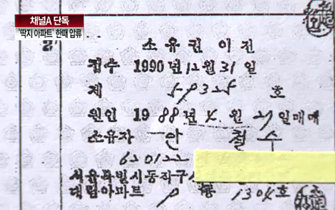 채널A 단독
'딱지 아파트' 한때 압류
소유권 이전
접수 1990년 12월 31일
제 호
원인 1988년 4월 21일 매매
소유자 안 철 수
620122
서울특별시동작구
대림아파트 동 1304호